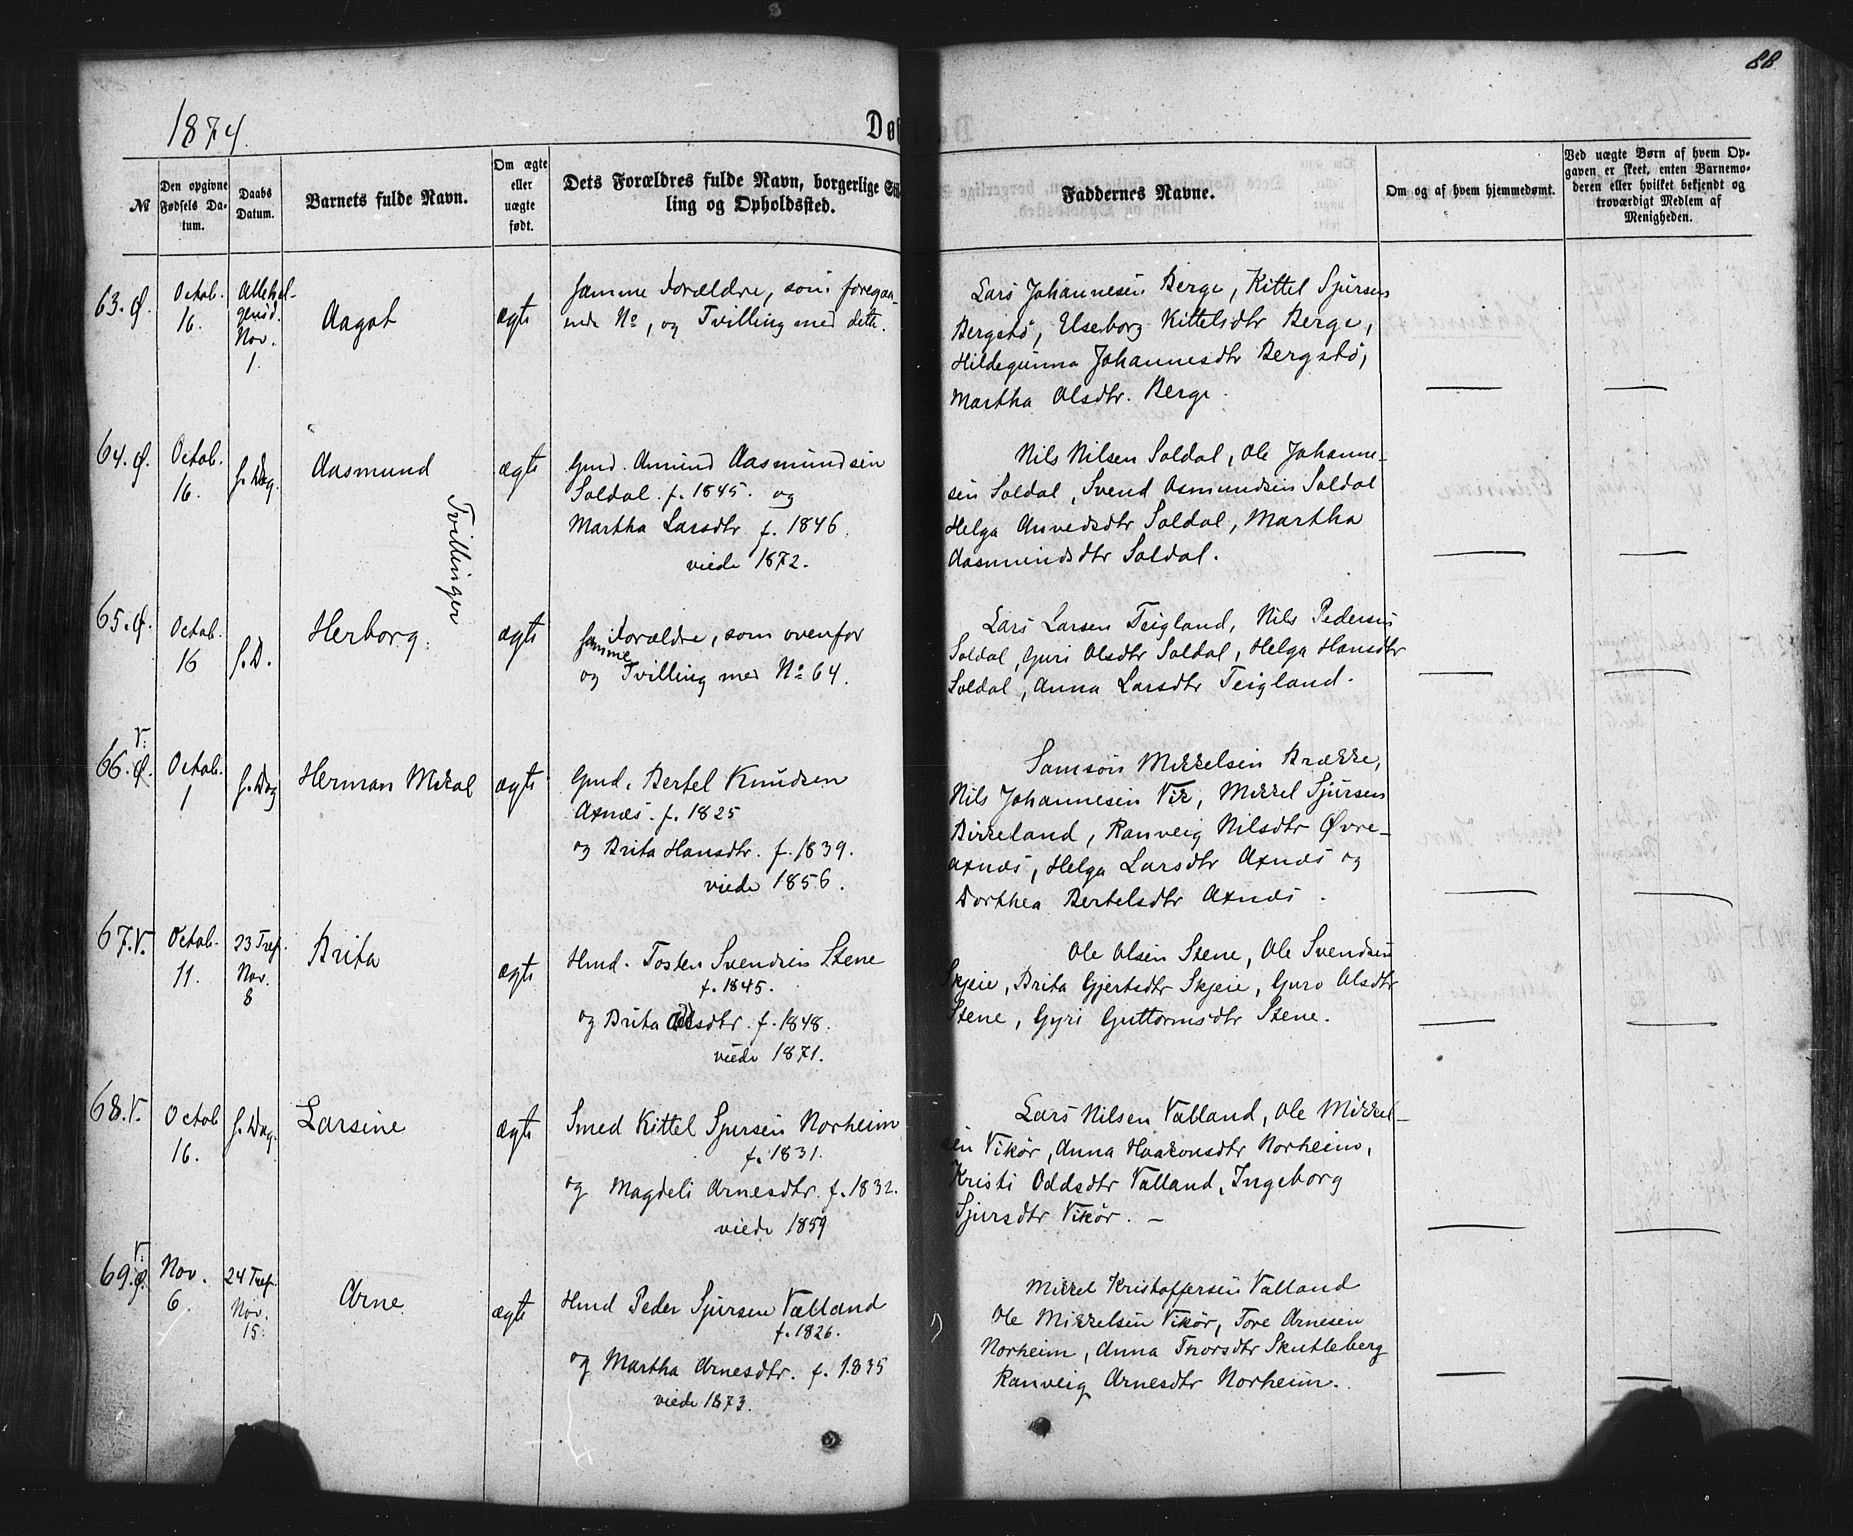 88
1874.
Døb
№
Den opgivne Fødsels Datum.
Daabs Datum.
Barnets fulde Navn.
Om ægte eller uægte født.
Dets Forældres fulde Navn, borgerlige Stilling og Opholdssted.
Faddernes Navne.
Om og af hvem hjemmedøbt.
Ved uægte Børn af hvem Opgaven er skeet, enten Barnemoderen eller hvilket bekjendt og troværdigt Medlem af Menigheden.
63. Ø.
Octob.
16.
Allehel-
gensd.
Nov.
1.
Aagot
ægte
samme Forældre, som foregaa-
ende No, og Tvilling med dette.
Lars Johannesen Berge, Kittel Sjursen
Bergstø, Elseborg Kittelsdtr Berge,
Hildegunna Johannesdtr Bergstø,
Martha Olsdtr. Berge.
64. Ø.
Octob.
16.
s. Dag.
Aasmund
ægte
Gmd. Amund Aasmundsen
Soldal. f. 1845. og
Martha Larsdtr f. 1846.
viede 1872.
Tvillinger
Nils Nilsen Soldal, Ole Johanne-
sen Soldal, Svend Asmundsen Soldal
Helga Anvedsdtr Soldal, Martha
Aasmundsdtr Soldal.
65. Ø.
Octob.
16
s. D.
Herborg.
ægte
samme Forældre, som ovenfor
og Tvilling med No 64.
Lars Larsen Teigland, Nils Pedersen
Soldal, Guri Olsdtr Soldal, Helga Hansdtr
Soldal, Anna Larsdtr Teigland.
V.
66. Ø.
Octob.
1
s. Dag
Herman Mikal
ægte
Gmd. Bertel Knudsen
Axnæs. f. 1825
og Brita Hansdtr. f. 1839.
viede 1856.
Samson Mikkelsen Brække,
Nils Johannesen Vik, Mikkel Sjursen
Birkeland, Ranveig Nilsdtr Øvre-
axnæs, Helga Larsdtr Axnæs og
Dorthea Bertelsdtr Axnæs.
67. V.
Octob.
11.
23 Tref.
Nov.
8
Brita
ægte
Hmd. Tosten Svendsen Stene
f. 1845.
og Brita Olsdtr. f. 1848.
viede 1871.
Ole Olsen Stene, Ole Svendsen
Skjeie, Brita Gjertsdtr Skjeie, Guro Olsdtr
Stene, Gyri Guttormsdtr Stene.
68. V.
Octob
16.
s. Dag.
Larsine
ægte
Smed Kittel Sjursen Norheim
f. 1831.
og Magdeli Arnesdtr. f. 1832.
viede 1859
Lars Nilsen Valland, Ole Mikkel-
sen Vikør, Anna Haakonsdtr Norheim,
Kristi Oddsdtr Valland, Ingeborg
Sjursdtr Vikør. –
V.
69. Ø.
Nov.
6.
24 Tref.
Nov.
15.
Arne.
ægte
Hmd Peder Sjursen Valland
f. 1826.
og Martha Arnesdtr. f. 1835
viede 1873.
Mikkel Kristoffersen Valland
Ole Mikkelsen Vikør, Tore Arnesen
Norheim, Anna Thorsdtr Skutleberg
Ranveig Arnesdtr Norheim.